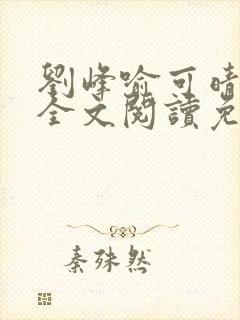 劉峰喻可晴
全文閱讀免
秦殊然